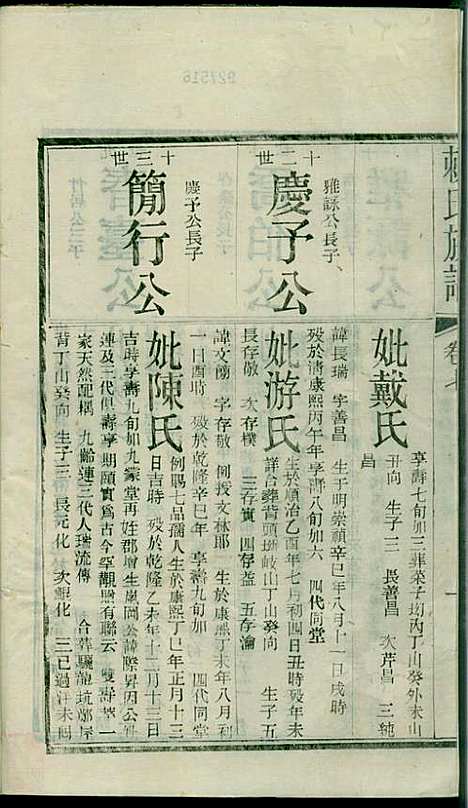 賴氏族譜
卷七
享壽七旬加三葬栄子坳丙丁山癸外未山
妣戴氏
丑向 生子三 長善昌 次芹昌 三純
昌
十二世
雅詠公長子
慶予公
諱長瑞 字善昌 生于明崇禎辛巳年八月十一日戌時
歿於清康熙丙午年享壽八旬加六 四代同堂
妣游氏
生於順治乙酉年七月初四日丑時歿未
詳合葬背頭坳岐山丁山癸向 生子五
長存敬 次存樸 三存實 四存益 五存瀹
十三世
慶予公長子
簡行公
諱文蘭 字存敬 例授文林郎 生於康熙丁未年八月初
一日酉時 歿於乾隆辛巳年 享壽九旬加 四代同堂
妣陳氏
例賜七品孺人生於康熙丁巳年正月十三
日吉時 歿於乾隆乙未年十二月十三日
吉時享壽九旬加九蒙堂再姪郡增生嵐岡公諱際昇因公
連及三代俱壽享期頤實為古今罕觀照有聯云 雙壽一
家天然配耦 九齡連三代人瑞流傳 合葬驪龍坑鄭屋
背丁山癸向 生子三 長元化 次觀化 三巳過
927516